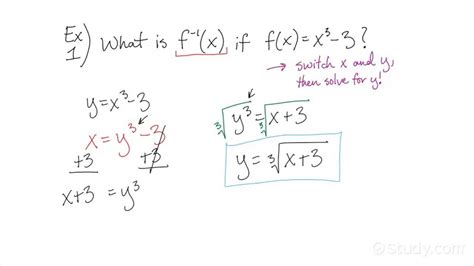 Ex 1) What is f⁻¹(x) if f(x) = x³ - 3?
→ switch x and y, then solve for y!
y = x³ - 3
x = y³ - 3
+3 +3
x + 3 = y³
∛y³ = ∛x + 3
y = ∛x + 3
Study.com